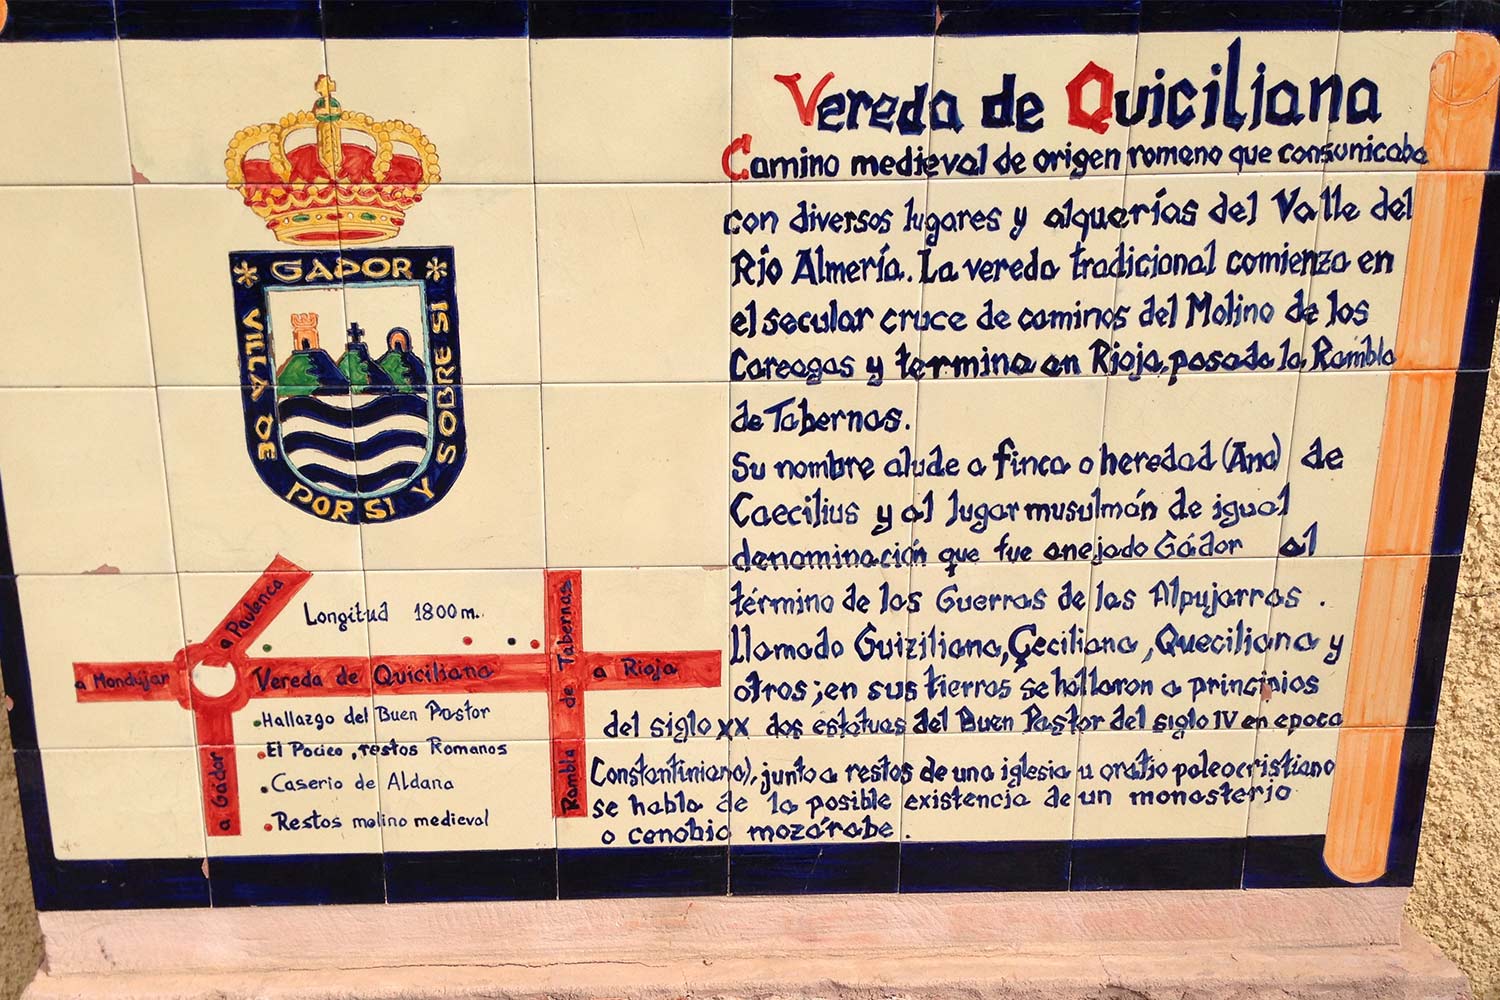 * GADOR *
VILLA DE
POR SI Y
SOBRE SI
Vereda de Quiciliana
Camino medieval de origen romano que consunicaba
con diversos lugares y alquerías del Valle del
Río Almería. La vereda tradicional comienza en
el secular cruce de caminos del Molino de los
Careagas y termina en Rioja, pasada la Rambla
de Tabernas.
Su nombre alude a finca o heredad (Ana) de
Caecilius y al lugar musulmán de igual
denominación que fue anejado Gádor al
término de las Guerras de las Alpujarras .
llamado Guiziliana, Çeciliana, Queciliana y
otros; en sus tierras se hallaron a principios
del siglo XX dos estatuas del Buen Pastor del siglo IV en epoca
Constantiniana), junto a restos de una iglesia u oratio paleocristiano
se habla de la posible existencia de un monasterio
o cenobio mozárabe .
Longitud 1800 m.
a Paulenca
a Mondújar
Vereda de Quiciliana
a Rioja
Rambla de Tabernas
a Gádor
.Hallazgo del Buen Pastor
.El Pocico, restos Romanos
.Caserio de Aldana
.Restos molino medieval